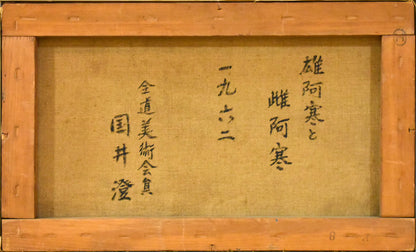 雄阿寒と
雌阿寒
一九六二
全道美術会員
国井澄